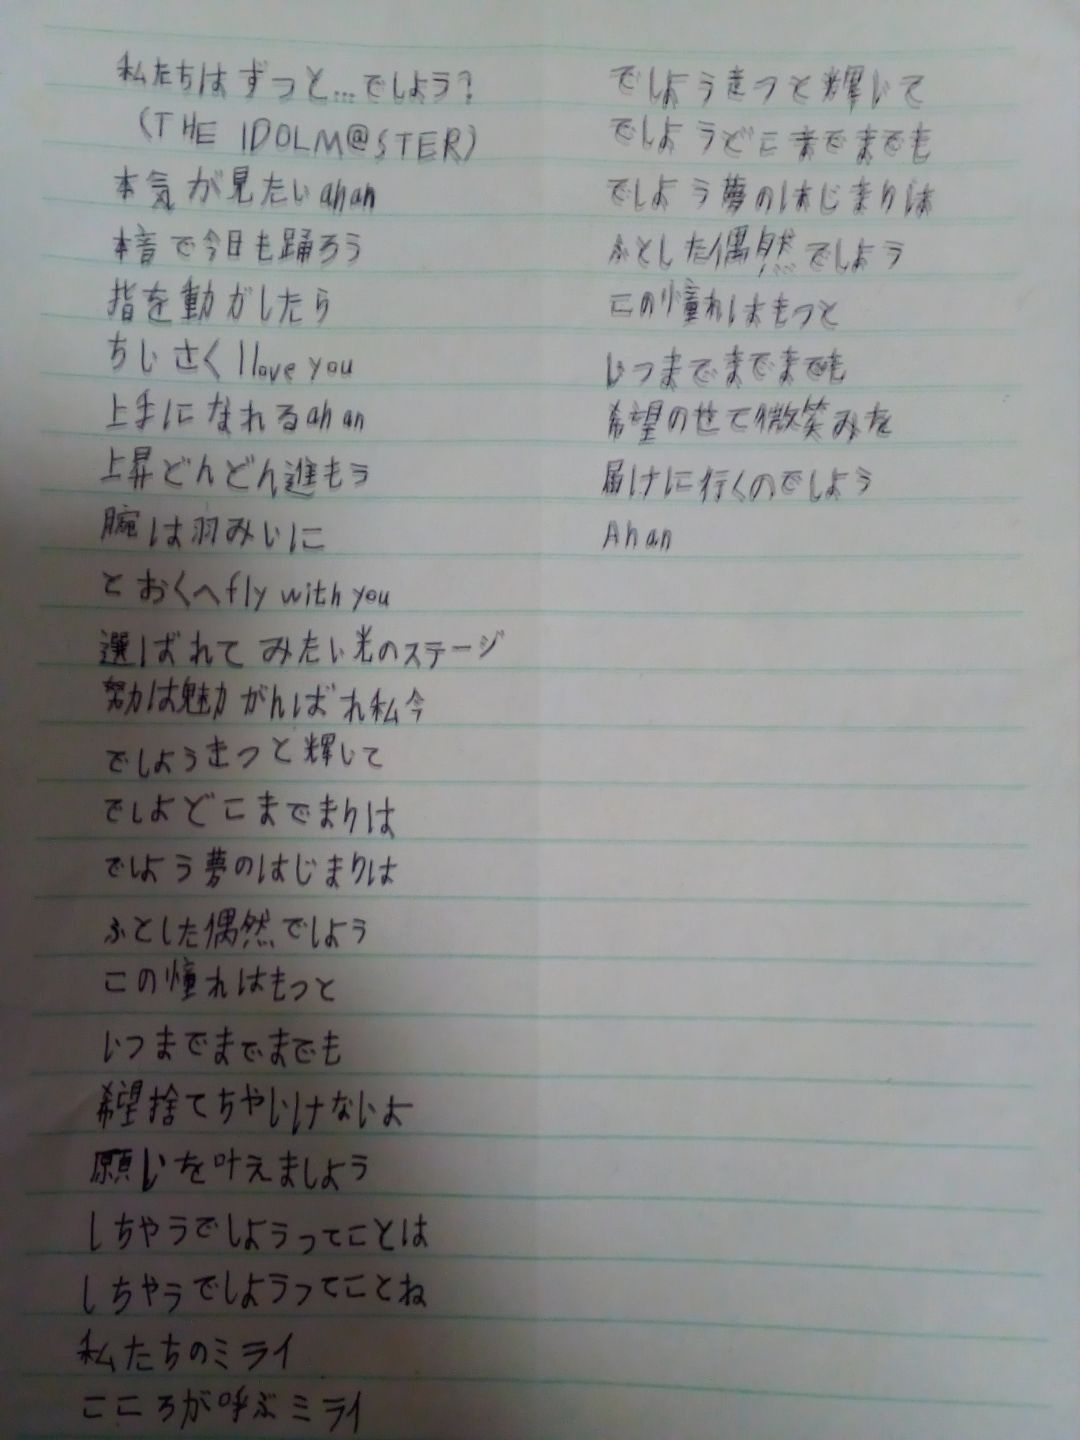 私たちはずっと…でしょう?
(THE IDOLM@STER)
本気が見たいahan
本音で今日も踊ろう
指を動かしたら
ちいさくI love you
上手になれるahan
上昇どんどん進もう
腕は羽みいに
とおくへfly with you
選ばれてみたい光のステージ
努力は魅力がんばれ私今
でしょうきっと輝いて
でしょどこまでまりは
でしょう夢のはじまりは
ふとした偶然でしょう
この憧れはもっと
いつまでまでまでも
希望捨てちゃいけないよ
願いを叶えましょう
しちゃうでしょうってことは
しちゃうでしょうってことね
私たちのミライ
こころが呼ぶミライ
でしょうきっと輝いて
でしょうどこまでまでも
でしょう夢のはじまりは
ふとした偶然でしょう
この憧れはもっと
いつまでまでまでも
希望のせて微笑みを
届けに行くのでしょう
Ahan